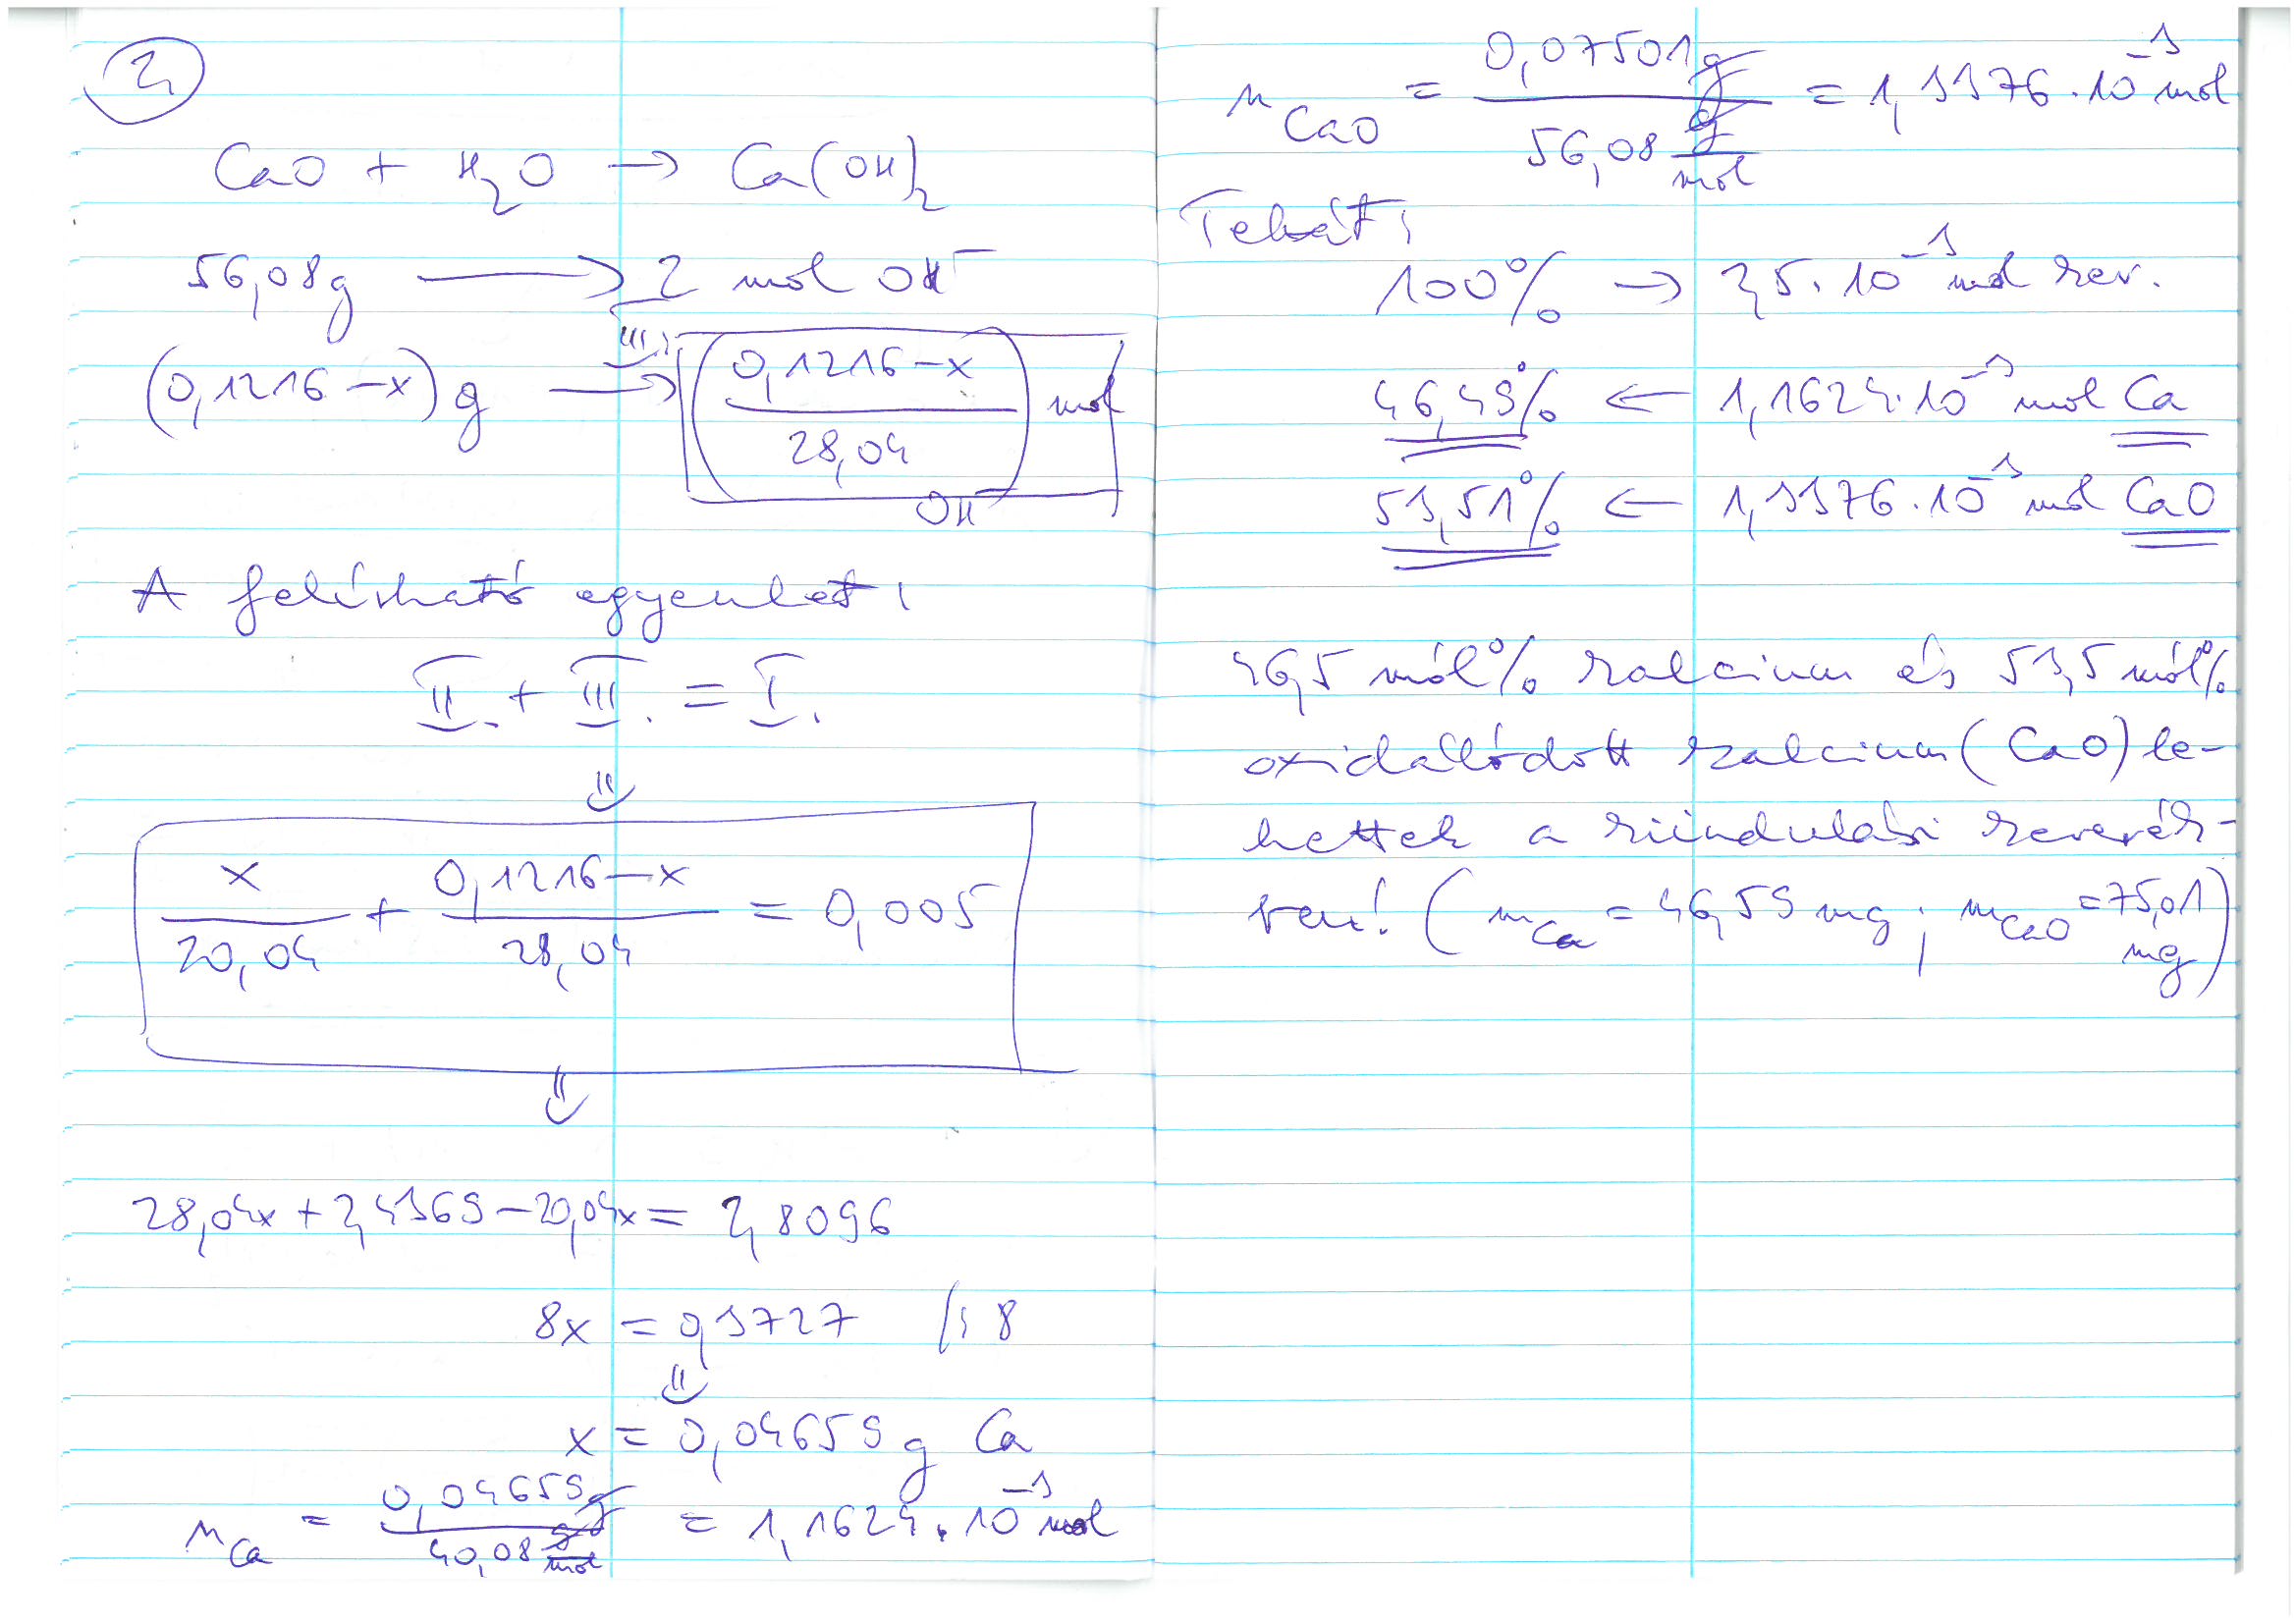 2,
CaO + H₂O → Ca(OH)₂
56,08g → 2 mol OH⁻
(0,1216-x) g → III., ((0,1216-x)/28,04) mol OH⁻
A felírható egyenlet:
II. + III. = I.
⇓
x/20,04 + (0,1216-x)/28,04 = 0,005
⇓
28,04x + 2,4369 - 20,04x = 2,8096
8x = 0,3727 /:8
⇓
x = 0,04659 g Ca
n_Ca = 0,04659g / 40,08 g/mol = 1,1624·10⁻³ mol
n_CaO = 0,07501g / 56,08 g/mol = 1,3376·10⁻³ mol
Tehát:
100% → 2,5·10⁻³ mol kev.
46,49% ← 1,1624·10⁻³ mol Ca
53,51% ← 1,3376·10⁻³ mol CaO
46,5 mól% kalcium és 53,5 mól%
oxidálódott kalcium (CaO) le-
hettek a kiindulási keverék-
ben! (m_Ca = 46,59 mg; m_CaO = 75,01
mg)